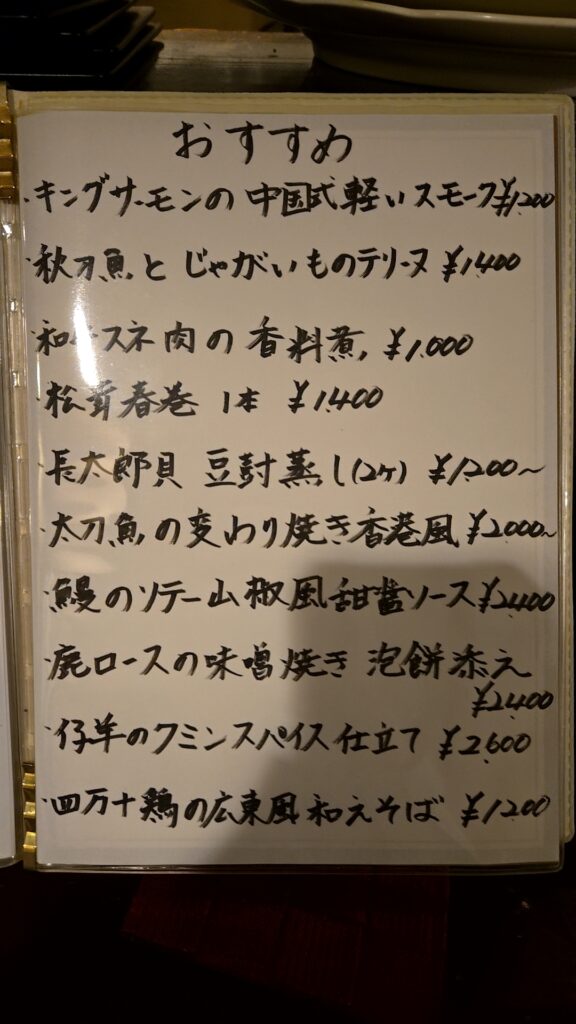 おすすめ
・キングサーモンの中国式軽いスモーク ¥1,200
・秋刀魚とじゃがいものテリーヌ ¥1,400
・和牛スネ肉の香料煮、¥1,000
・松茸春巻 1本 ¥1,400
・長太郎貝 豆豉蒸し(2ヶ) ¥1,200〜
・太刀魚の変わり焼き香港風 ¥2,000〜
・鰻のソテー山椒風甜醤ソース ¥2,400
・鹿ロースの味噌焼き 泡餅添え
¥2,400
・仔羊のクミンスパイス仕立て ¥2,600
・四万十鶏の広東風和えそば ¥1,200